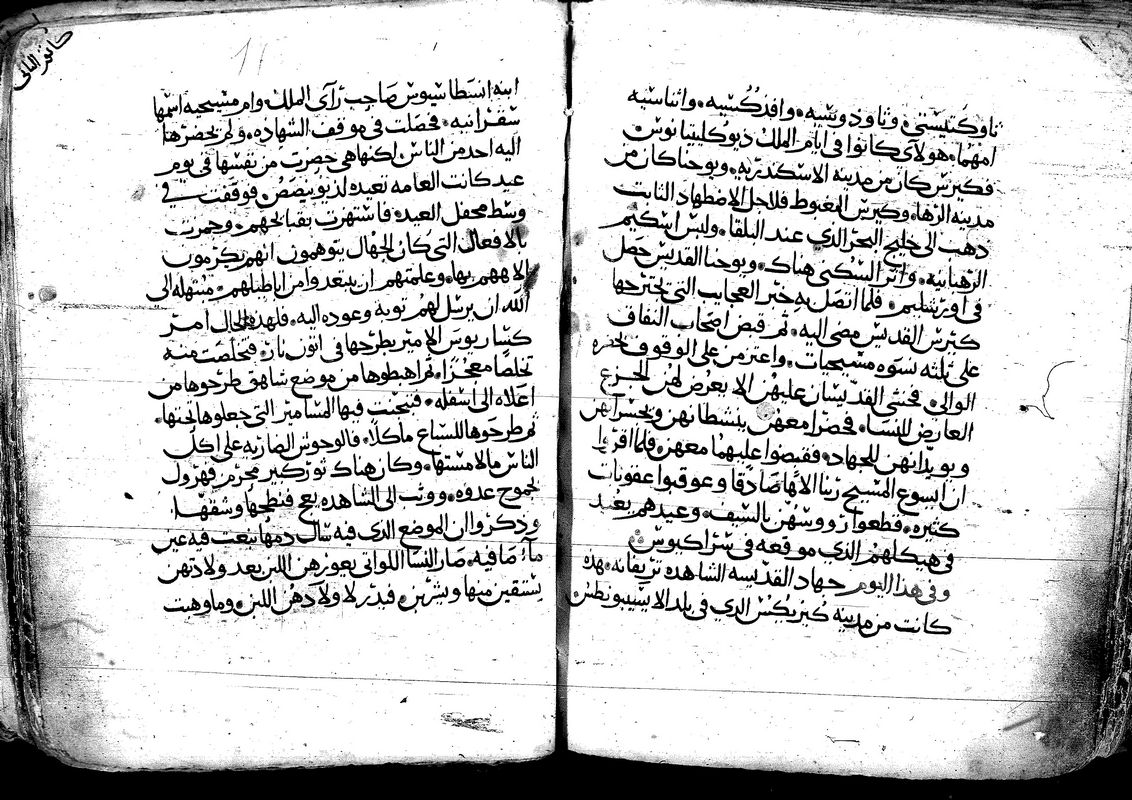 ثاوكتيستي وثاوذوتيه وافدكسيه واثناسيه
امهما هولاي كانوا في ايام الملك ديوكليتيانوس
فكيرس كان من مدينة الاسكندريه ويوحنا كان من
مدينة الرها وكيرس المغبوط فلاجل الاضطهاد الثابت
ذهب الى خليج البحر الذي عند البلقا ولبس اسكيم
الرهبانيه واثر السكنى هناك ويوحنا القديس حصل
في اورشليم فلما اتصل به خبر العجايب التي يجترحها
كيرس القديس مضى اليه ثم قبض اصحاب النفاق
على ثلثه نسوه مسيحيات واعتزمن على الوقوف بحضره
الوالي فخشي القديسان عليهن الا يعرض لهن الجزع
العارض للنسا فحضرا معهن ينشطانهن ويجسرانهن
ويويدانهن للجهاد فقبضوا عليهما معهن فلما اقروا
ان ايسوع المسيح ربنا الاها صادقا وعوقبوا عقوبات
كثيره فقطعوا رووسهن بالسيف وعيدهم يعيد
في هيكلهم الذي موقعه في
وفي هذا اليوم جهاد القديسه الشاهده تريفانه هذه
كانت من مدينة كيزيكس الذي في بلد الايسيبونطس
كانون الثاني
ابنة انسطاسيوس صاحب رآي الملك وام مسيحيه اسمها
سقرانيه فحصلت في موقف الشهاده ولم يحضرها
اليه احد من الناس لكنها هي حضرت من نفسها في يوم
عيد كانت العامه تعيده لذيوبيصص فوقفت في
وسط محفل العيد فاستهزت بقبايحهم وحمرت
بالافعال التي كان الجهال يتوهمون انهم يكرمون
الاههم بها وعلمتهم ان يبتعدوا من اباطيلهم مبتهله الى
الله ان يرسل لهم توبه وعوده اليه فلهذه الحال امر
كساريوس الامير بطرحها في اتون نار فتخلصت منه
تخلصا معجزا ثم اهبطوها من موضع شاهق طرحوها من
اعلاه الى اسفله فنجت فيها المسامير التي جعلوها لجنبها
ثم طرحوها للسباع ماكلا فالوحوش الضاريه على اكل
الناس مالامستها وكان هناك ثور كبير مجرم فهرول
بجموح عدوه ووثب الى الشاهده يعج فنطحها وشقها
وذكروا ان الموضع الذي فيه سال دمها نبعت فيه عين
ماء صافيه صار النسا اللواتي يعوزهن اللبن بعد ولادتهن
يستقين منها وشربن فيدر لاولادهن اللبن وما وهبت